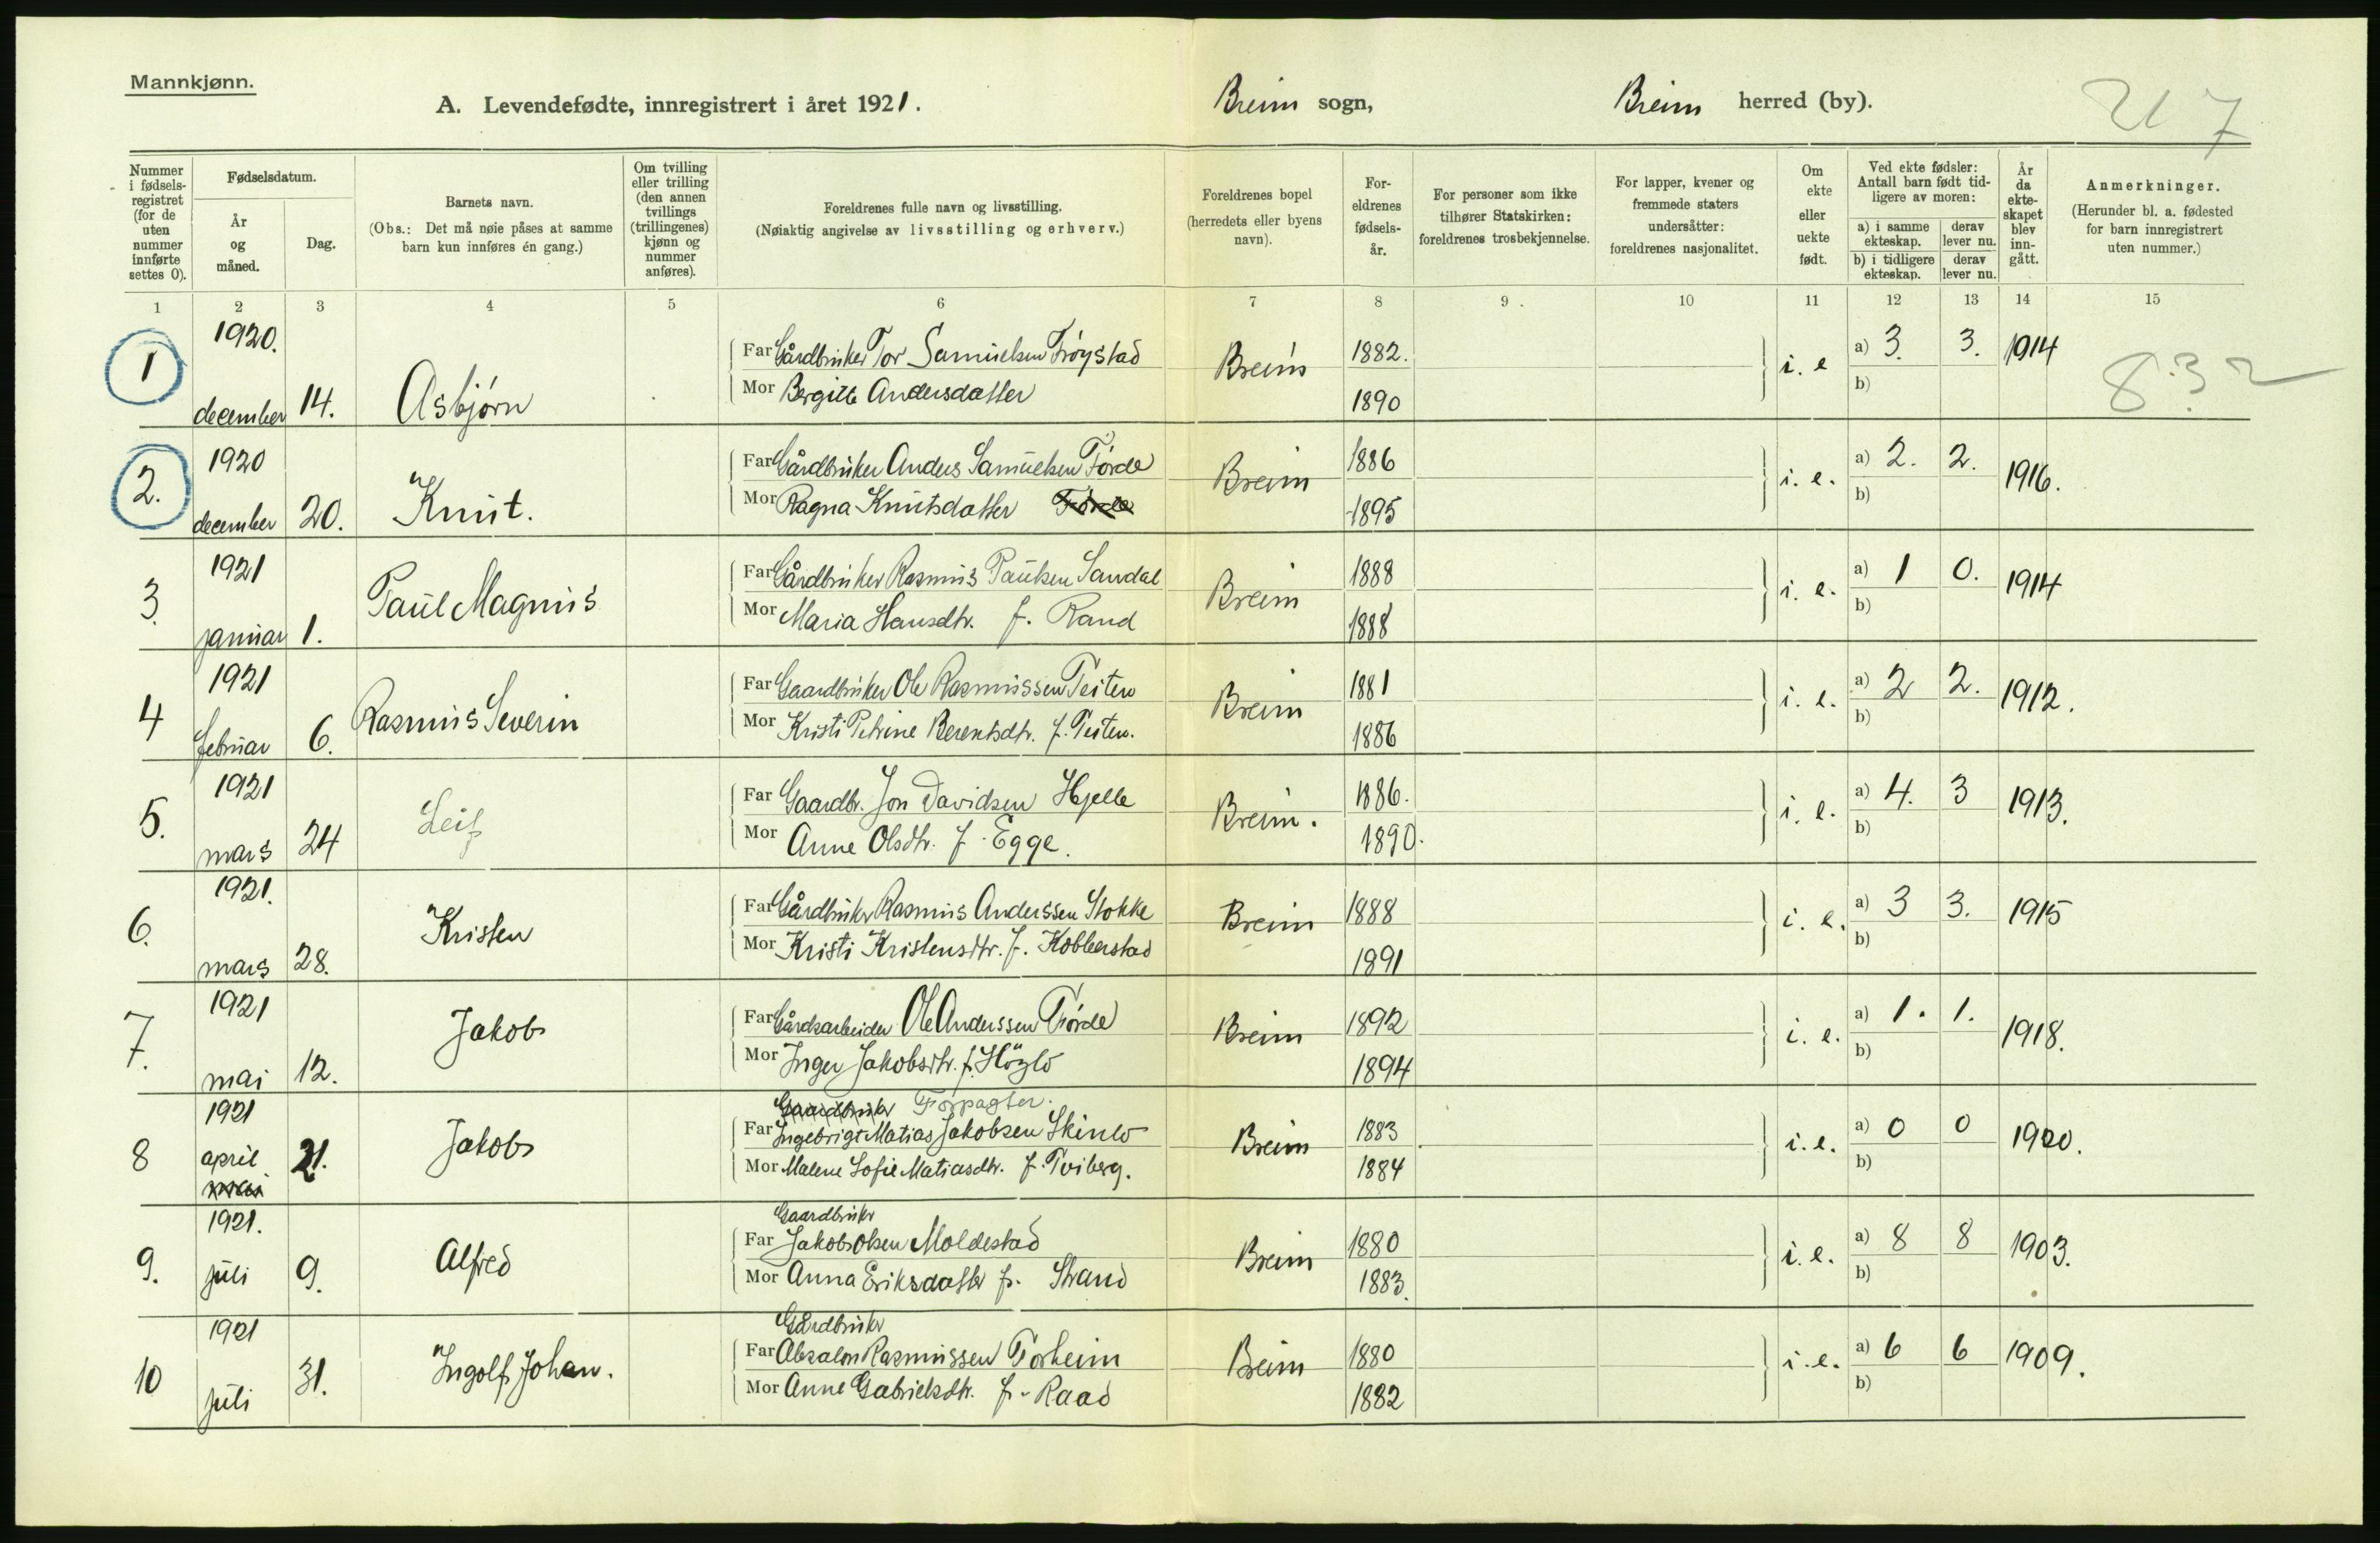 Mannkjønn.
A. Levendefødte, innregistrert i året 1921.
Breim sogn, Breim herred (by).
217
Nummer i fødsels-registret (for de uten nummer innførte settes 0).
Fødselsdatum.
År og måned.
Dag.
Barnets navn.
(Obs.: Det må nøie påses at samme barn kun innføres én gang.)
Om tvilling eller trilling (den annen tvillings (trillingenes) kjønn og nummer anføres).
Foreldrenes fulle navn og livsstilling.
(Nøiaktig angivelse av livsstilling og erhverv.)
Foreldrenes bopel (herredets eller byens navn).
For-eldrenes fødsels-år.
For personer som ikke tilhører Statskirken: foreldrenes trosbekjennelse.
For lapper, kvener og fremmede staters undersåtter: foreldrenes nasjonalitet.
Om ekte eller uekte født.
Ved ekte fødsler: Antall barn født tid-ligere av moren:
a) i samme ekteskap. derav lever nu.
b) i tidligere ekteskap. derav lever nu.
År da ekte-skapet blev inn-gått.
Anmerkninger.
(Herunder bl. a. fødested for barn innregistrert uten nummer.)
1 2 3 4 5 6 7 8 9. 10 11 12 13 14 15
1 1920. december 14. Asbjørn
Far Gårdbruker Tor Samuelsen Frøystad Breim 1882. i. e a) 3. 3. 1914
Mor Bergitte Andersdatter 1890 b)
832
2. 1920 december 20. Knut.
Far Gårdbruker Anders Samuelsen Førde Breim 1886 i. e. a) 2. 2. 1916.
Mor Ragna Knutsdatter Førde 1895 b)
3. 1921 januar 1. Paul Magnus
Far Gårdbruker Rasmus Paulsen Sandal Breim 1888 i. e. a) 1 0. 1914
Mor Maria Hansdtr. f. Rand 1888 b)
4 1921 februar 6. Rasmus Severin
Far Gaardbruker Ole Rasmussen Teiten Breim 1881 i. e. a) 2 2. 1912.
Mor Kristi Petrine Berentsdtr. f. Teiten. 1886 b)
5. 1921 mars 24 Leif
Far Gaardbr. Jon Davidsen Hjelle Breim. 1886. i. e. a) 4. 3 1913.
Mor Anne Olsdtr. f. Egge. 1890. b)
6. 1921. mars 28. Kristen
Far Gårdbruker Rasmus Anderssen Stokke Breim 1888 i. e. a) 3 3. 1915
Mor Kristi Kristensdtr. f. Kobberstad 1891 b)
7. 1921 mai 12. Jakob
Far Gårdsarbeider Ole Anderssen Førde Breim 1892 i. e. a) 1. 1. 1918.
Mor Inger Jakobsdtr. f. 1894 b)
8 1921 april mai 21. Jakob
Gaardbruker Forpagter.
Far Ingebrigt Matias Jakobsen Skinlo Breim 1883 i.e. a) 0 0 1920.
Mor Malene Sofie Matiasdtr. f. Tviberg. 1884 b)
9. 1921. juli 9. Alfred
Gaardbruker
Far Jakob Olsen Moldestad Breim 1880 i.e. a) 8 8 1903.
Mor Anna Eriksdatter f. Strand 1883. b)
10 1921 juli 31. Ingolf Johan.
Gårdbruker
Far Absalon Rasmussen Torheim Breim 1880 i.e. a) 6 6 1909.
Mor Anne Gabrielsdtr. f. Raad 1882 b)